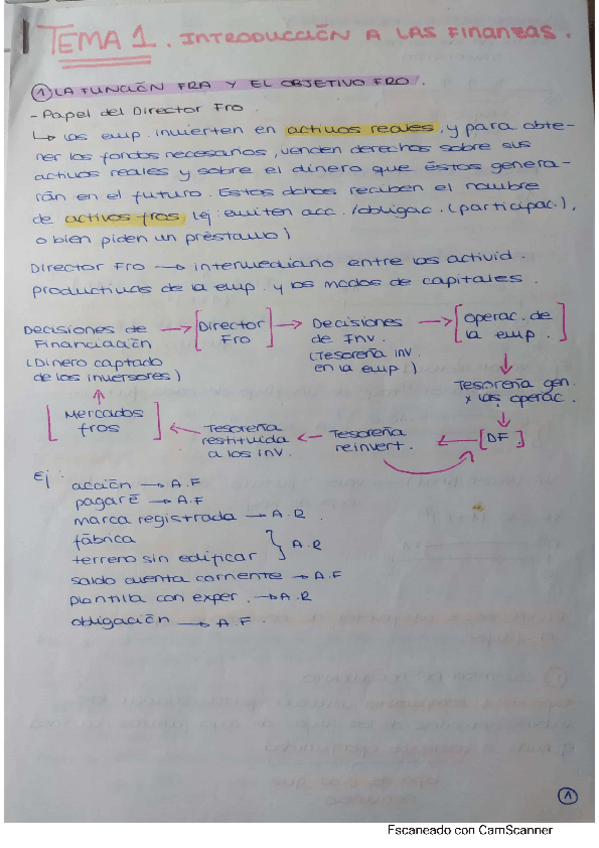 TEMA 1. INTRODUCCIÓN A LAS FINANZAS.
① LA FUNCIÓN FRA Y EL OBJETIVO FRO.
- Papel del Director Fro.
↳ Las emp. invierten en activos reales, y para obte-
ner los fondos necesarios, venden derechos sobre sus
activos reales y sobre el dinero que éstos genera-
rán en el futuro. Estos dchos reciben el nombre
de activos fros (ej: emiten acc./obligac. (participac.),
o bien piden un préstamo)
Director Fro → intermediario entre las activid.
productivas de la emp. y los mdos de capitales.
Decisiones de Financiación (Dinero captado de los inversores) → [Director Fro] → Decisiones de Inv. (Tesorería inv. en la emp) → [Operac. de la emp.]
Tesorería gen. x las operac.
[Mercados fros] ← Tesorería restituida a los inv. ← Tesorería reinvert. ← [DF.]
Ej:
acción → A.F
pagaré → A.F
marca registrada → A.R.
fábrica
terreno sin edificar } A.R
saldo cuenta corriente → A.F
plantilla con exper. → A.R
obligación → A.F.
1
Escaneado con CamScanner